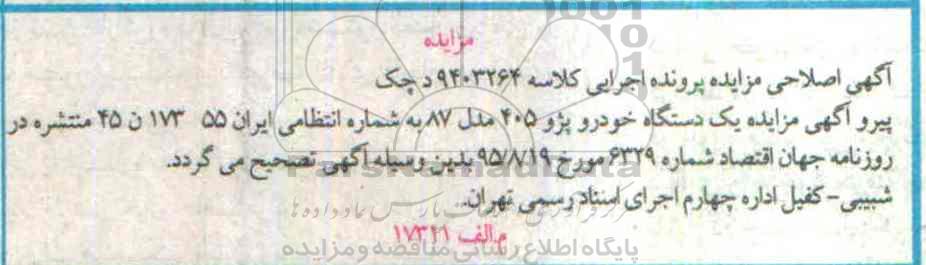 مزایده
آگهی اصلاحی مزایده پرونده اجرایی کلاسه ۹۴۰۳۲۶۴ د چک
پیرو آگهی مزایده یک دستگاه خودرو پژو ۴۰۵ مدل ۸۷ به شماره انتظامی ایران ۵۵ ۱۷۳ ن ۴۵ منتشره در
روزنامه جهان اقتصاد شماره ۶۳۲۹ مورخ ۹۵/۸/۱۹ بدین وسیله آگهی تصحیح می گردد.
شبیبی - کفیل اداره چهارم اجرای اسناد رسمی تهران.
م الف ۱۷۳۲۱
پایگاه اطلاع رسانی مناقصه و مزایده